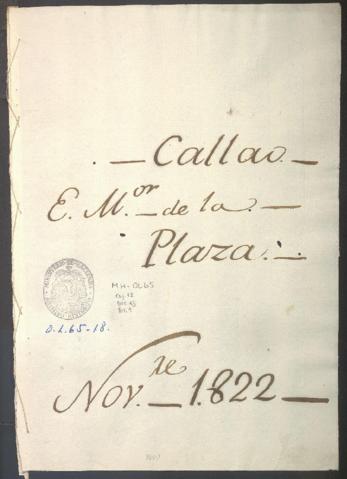 . — Callao. —
E. M.or — de la. —
Plaza. —
MH-OL65
D.L.65-18.
Nov.re — 1.822 —